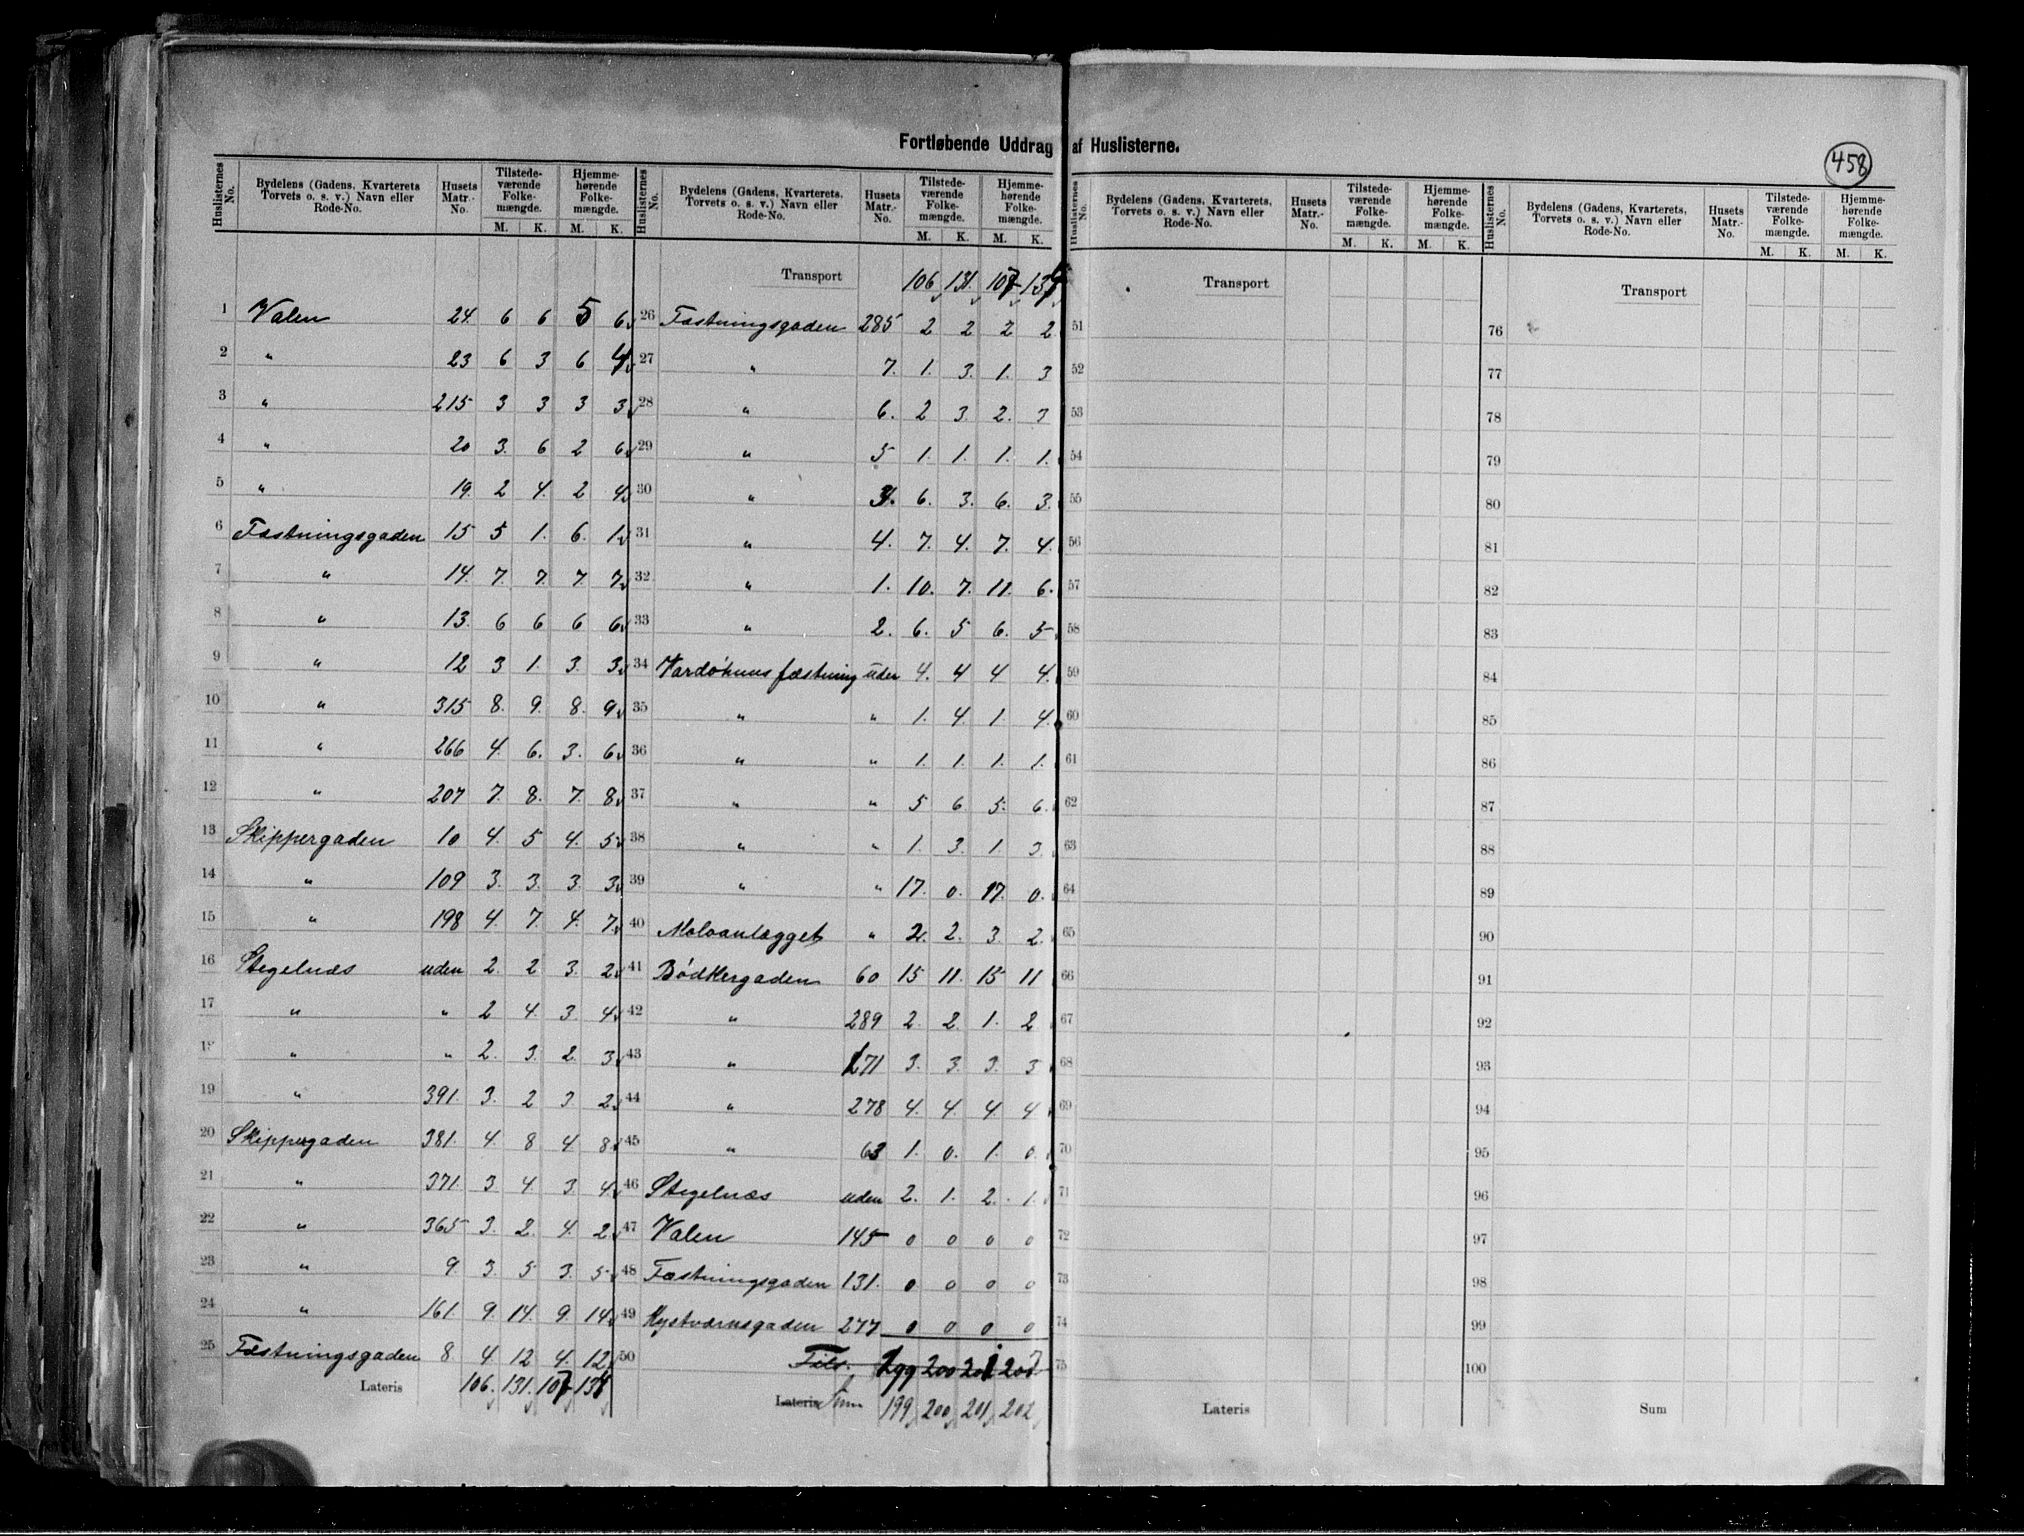 Fortløbende Uddrag af Huslisterne.
458
Huslisternes No. Bydelens (Gadens, Kvarterets Torvets o. s. v.) Navn eller Rode-No. Husets Matr.-No. Tilstedeværende Folkemængde. M. K. Hjemmehørende Folkemængde. M. K.
1 Valen 24. 6 6 5 6
2 " 23 6 3 6 4
3 " 215 3 3 3 3
4 " 20 3. 6 2 6
5 " 19. 2 4. 2 4
6 Fæstningsgaden 15 5 1. 6. 1
7 " 14. 7. 7. 7. 7
8 " 13. 6 6 6 6
9 " 12 3 1. 3. 3
10 " 315 8. 9. 8. 9
11 " 266 4. 6. 3. 6
12 " 207 7. 8. 7. 8
13 Skippergaden 10 4. 5 4. 5
14 " 109 3. 3. 3. 3
15 " 198 4. 7. 4. 7
16 Stegelnæs uden 2. 2 3. 2
17 " " 2 4. 3. 4
18 " " 2. 3. 2. 3
19 " 391. 3. 2 3 2
20 Skippergaden 381. 4. 8 4. 8
21 " 371. 3 4 3. 4
22 " 365 3. 2. 4. 2
23 " 9. 3. 5 3. 5
24 " 161. 9. 14. 9. 14
25 Fæstningsgaden 8. 4. 12 4. 12
Lateris 106. 131. 107 134
Huslisternes No. Bydelens (Gadens, Kvarterets, Torvets o. s. v.) Navn eller Rode-No. Husets Matr.-No. Tilstedeværende Folkemængde. M. K. Hjemmehørende Folkemængde. M. K.
Transport 106 131. 107 134
26 Fæstningsgaden 285 2 2 2 2
27 " 7. 1. 3. 1. 3
28 " 6. 2 3. 2. 3
29 " 5 1. 1. 1. 1.
30 " 3. 6. 3. 6. 3.
31 " 4. 7. 4. 7. 4.
32 " 1. 10. 7. 11. 6.
33 " 2. 6. 5 6. 5
34 Vardøhuus fæstning uden 4. 4 4 4.
35 " " 1. 4. 1 4.
36 " " 1. 1. 1. 1.
37 " " 5 6. 5. 6.
38 " " 1. 3. 1 3.
39 " " 17. 0. 17. 0.
40 Moloanlægget " 2. 2. 3. 2.
41 Bødkergaden 60 15 11. 15 11
42 " 289 2. 2 1. 2
43 " 271 3. 3. 3. 3
44 " 278 4. 4. 4. 4
45 " 63 1. 0. 1. 0.
46 Stegelnæs uden 2. 1. 2. 1.
47 Valen 145 0 0 0 0
48 Fæstningsgaden 131. 0 0 0 0
49 Kystværnsgaden 277 0 0 0 0
50 Tils. 199 200 201 207
Lateris Sum 199 200 201 202
Huslisternes No. Bydelens (Gadens, Kvarterets, Torvets o. s. v.) Navn eller Rode-No. Husets Matr.-No. Tilstedeværende Folkemængde. M. K. Hjemmehørende Folkemængde. M. K.
Transport
51
52
53
54
55
56
57
58
59
60
61
62
63
64
65
66
67
68
69
70
71
72
73
74
75
Lateris
Huslisternes No. Bydelens (Gadens, Kvarterets, Torvets o. s. v.) Navn eller Rode-No. Husets Matr.-No. Tilstedeværende Folkemængde. M. K. Hjemmehørende Folkemængde. M. K.
Transport
76
77
78
79
80
81
82
83
84
85
86
87
88
89
90
91
92
93
94
95
96
97
98
99
100
Sum